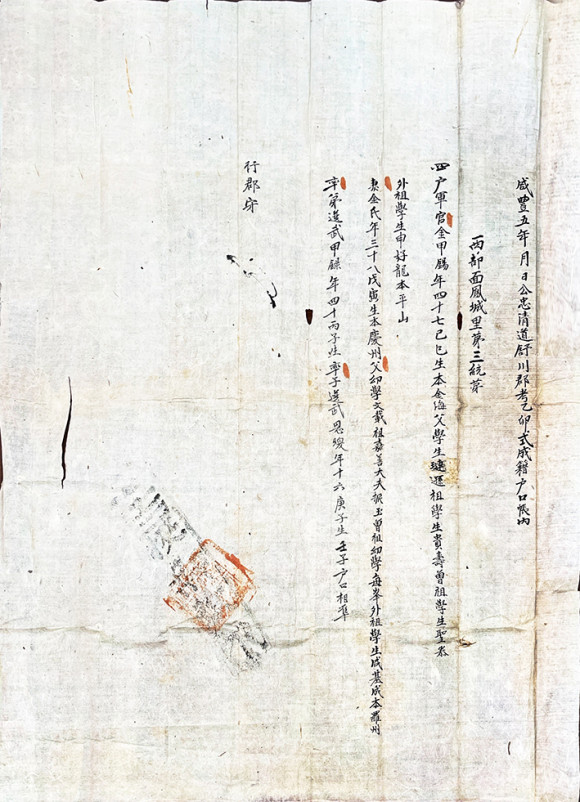 咸豐五年 月 日公忠清道舒川郡考乙卯式成籍戶口帳內
西部面鳳城里第三統第
四户軍官金甲賜年四十七己巳生本金海父學生運祖學生貴壽曾祖學生聖
外祖學生申好龍本平山
妻金氏年三十八戊寅生本慶州父幼學文載祖嘉善大夫振玉曾祖幼學每峯外祖學生成基成本羅州
率弟選武甲祿年四十丙子生率子選武恩俊年十六庚子生壬子户口相準
行郡守